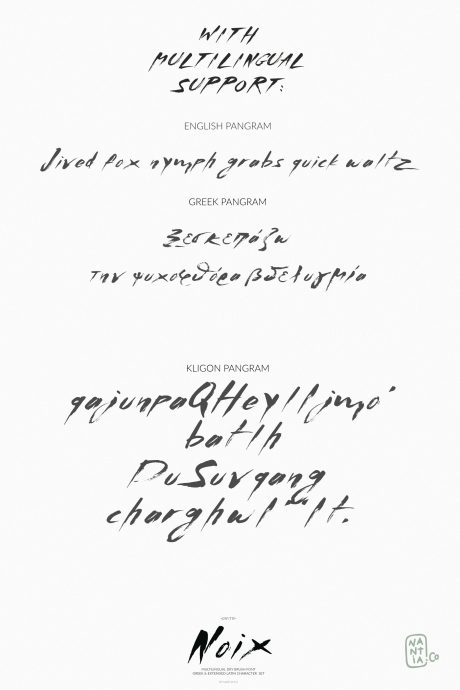 WITH
MULTILINGUAL
SUPPORT:
ENGLISH PANGRAM
Jived fox nymph grabs quick waltz
GREEK PANGRAM
Ξεσκεπάζω
την ψυχοφθόρα βδελυγμία
KLIGON PANGRAM
qajunpaQHeylIjmo'
batlh
DuSuvqang
charghwI'
It.
Noix
MULTILINGUAL DRY BRUSH FONT
GREEK & EXTENDED LATIN CHARACTER SET
NANTIA.CO